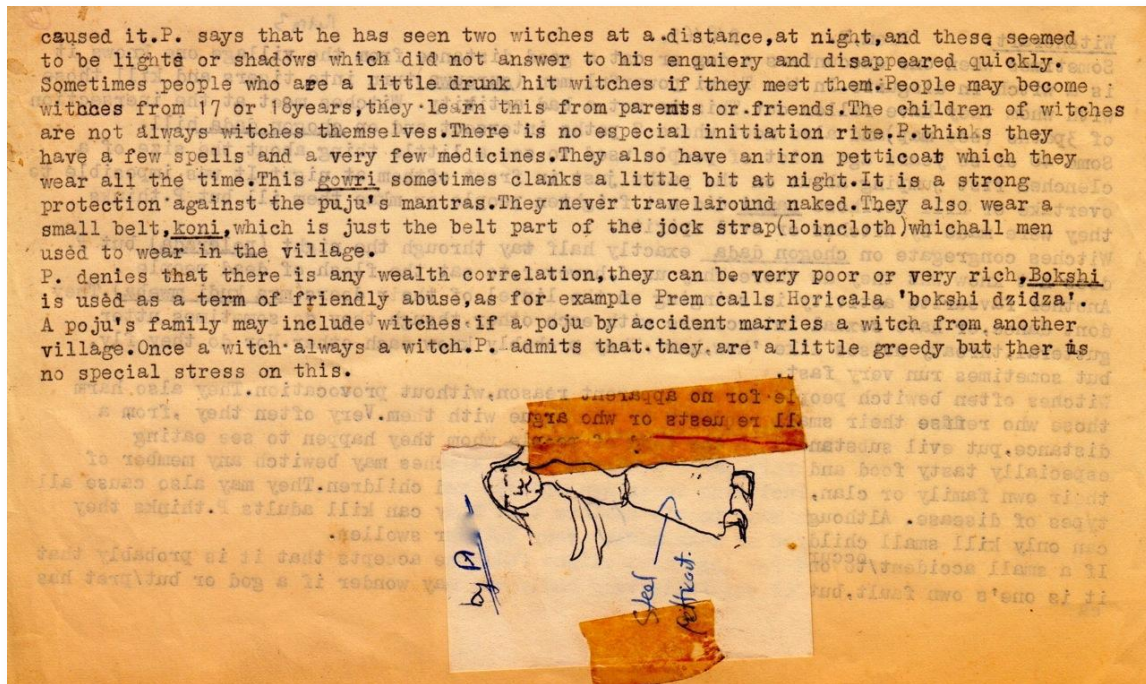 caused it.P. says that he has seen two witches at a distance,at night,and these seemed
to be lights or shadows which did not answer to his enquiery and disappeared quickly.
Sometimes people who are a little drunk hit witches if they meet them.People may become
withhes from 17 or 18years,they learn this from parents or friends.The children of witches
are not always witches themselves.There is no especial initiation rite.P.thinks they
have a few spells and a very few medicines.They also have an iron petticoat which they
wear all the time.This gowri sometimes clanks a little bit at night.It is a strong
protection against the puju's mantras.They never travelaround naked.They also wear a
small belt,koni,which is just the belt part of the jock strap(loincloth)whichall men
used to wear in the village.
P. denies that there is any wealth correlation,they can be very poor or very rich,Bokshi
is used as a term of friendly abuse,as for example Prem calls Horicala 'bokshi dzidza'.
A poju's family may include witches if a poju by accident marries a witch from another
village.Once a witch always a witch.P. admits that they are a little greedy but ther is
no special stress on this.
by
Steel
Petticoat.